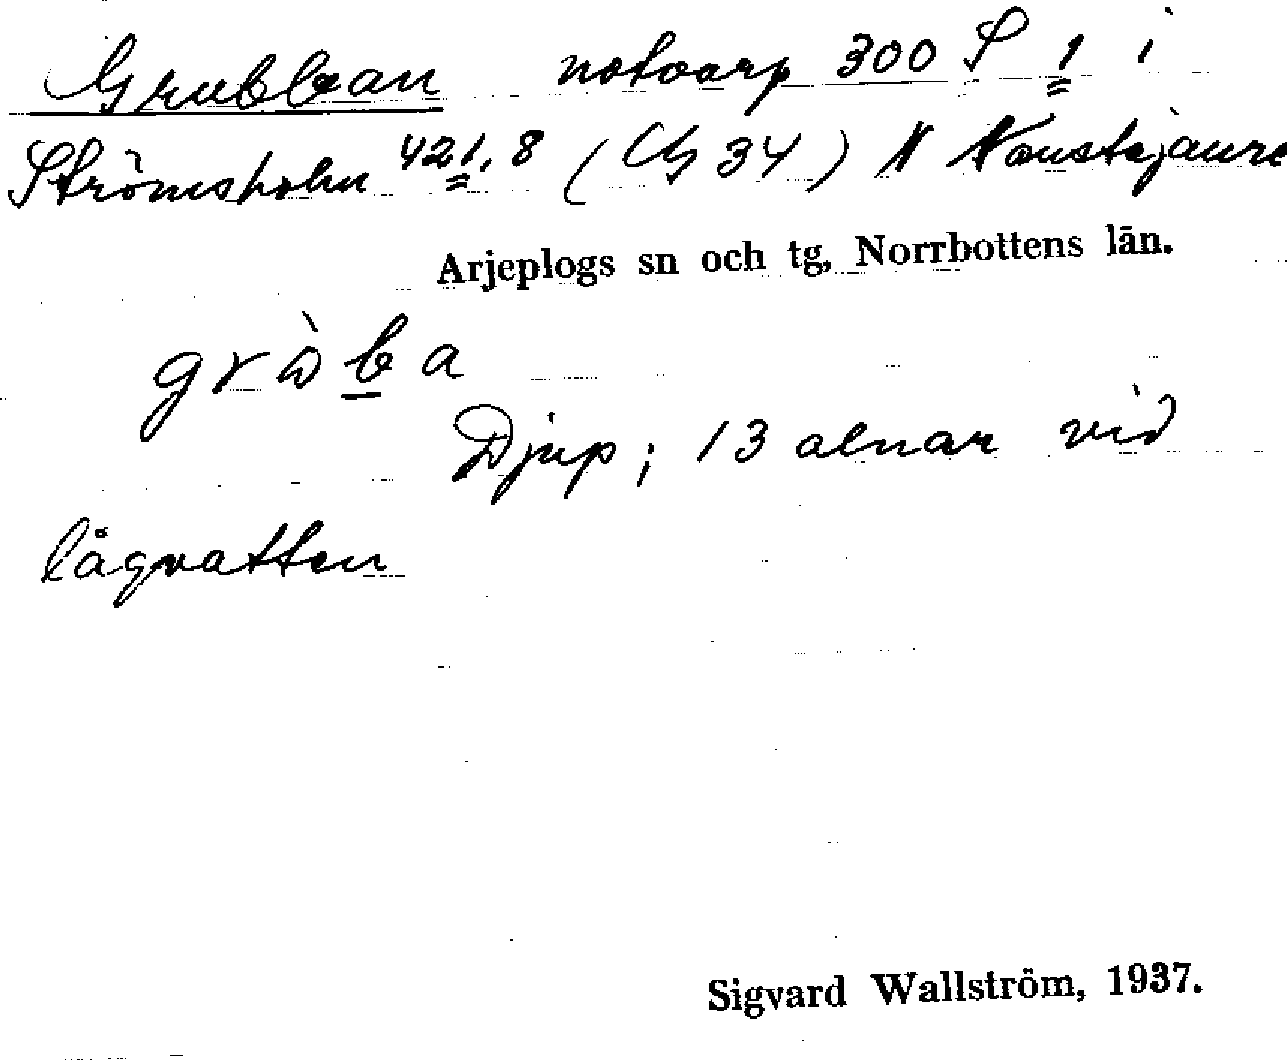 Grubban notvarp 300 S 1 i
Strömsholm 421,8 (Cg 34) N Naustajaure
Arjeplogs sn och tg, Norrbottens län.
gròba
Djup; 13 alnar vid
lågvatten
Sigvard Wallström, 1937.